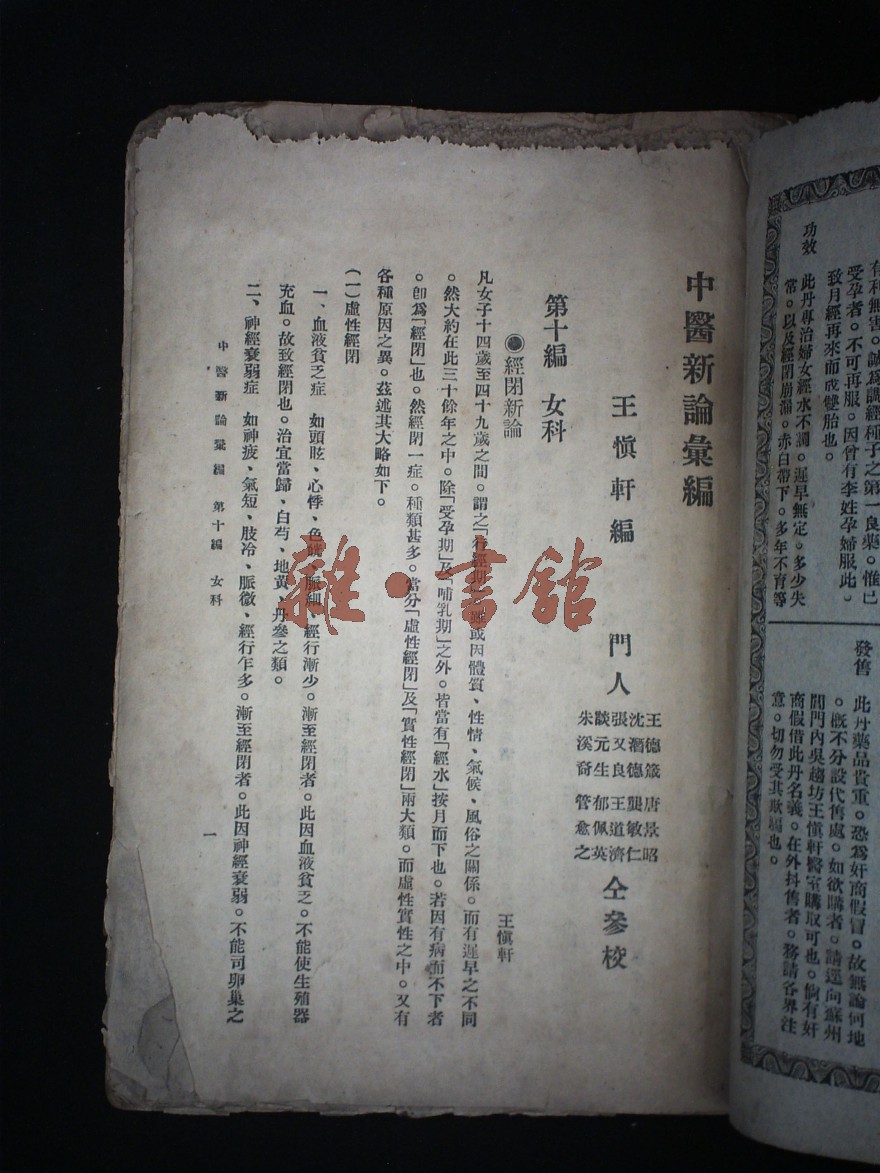 有利無害。誠為調經種子之第一良藥。惟已
受孕者。不可再服。因曾有李姓孕婦服此。
致月經再來而成雙胎也。
功效 此丹專治婦女經水不調。遲早無定。多少失
常。以及經閉崩漏。赤白帶下。多年不育等
發售 此丹藥品貴重。恐為奸商假冒。故無論何地
。概不分設代售處。如欲購者。請逕向蘇州
閶門內吳趨坊王愼軒醫室購取可也。倘有奸
商假借此丹名義。在外抖售者。務請各界注
意。切勿受其欺騙也。
中醫新論彙編
王愼軒編
門人
王德箴 唐景昭
沈潛德 龔敏仁
張又良 王道濟
談元生 郁佩英
朱溪裔 管愈之
仝參校
第十編 女科
●經閉新論
王愼軒
凡女子十四歲至四十九歲之間。謂之「行經期」。雖或因體質、性情、氣候、風俗之關係。而有遲早之不同
。然大約在此三十餘年之中。除「受孕期」及「哺乳期」之外。皆當有「經水」按月而下也。若因有病而不下者
。卽爲「經閉」也。然經閉一症。種類甚多。當分「虛性經閉」及「實性經閉」兩大類。而虛性實性之中。又有
各種原因之異。茲述其大略如下。
(一)虛性經閉
一、血液貧乏症 如頭眩、心悸、色㿠、脈細、經行漸少。漸至經閉者。此因血液貧乏。不能使生殖器
充血。故致經閉也。治宜當歸、白芍、地黃、丹參之類。
二、神經衰弱症 如神疲、氣短、肢冷、脈微、經行乍多。漸至經閉者。此因神經衰弱。不能司卵巢之
中醫新論彙編 第十編 女科
一
雜·書館